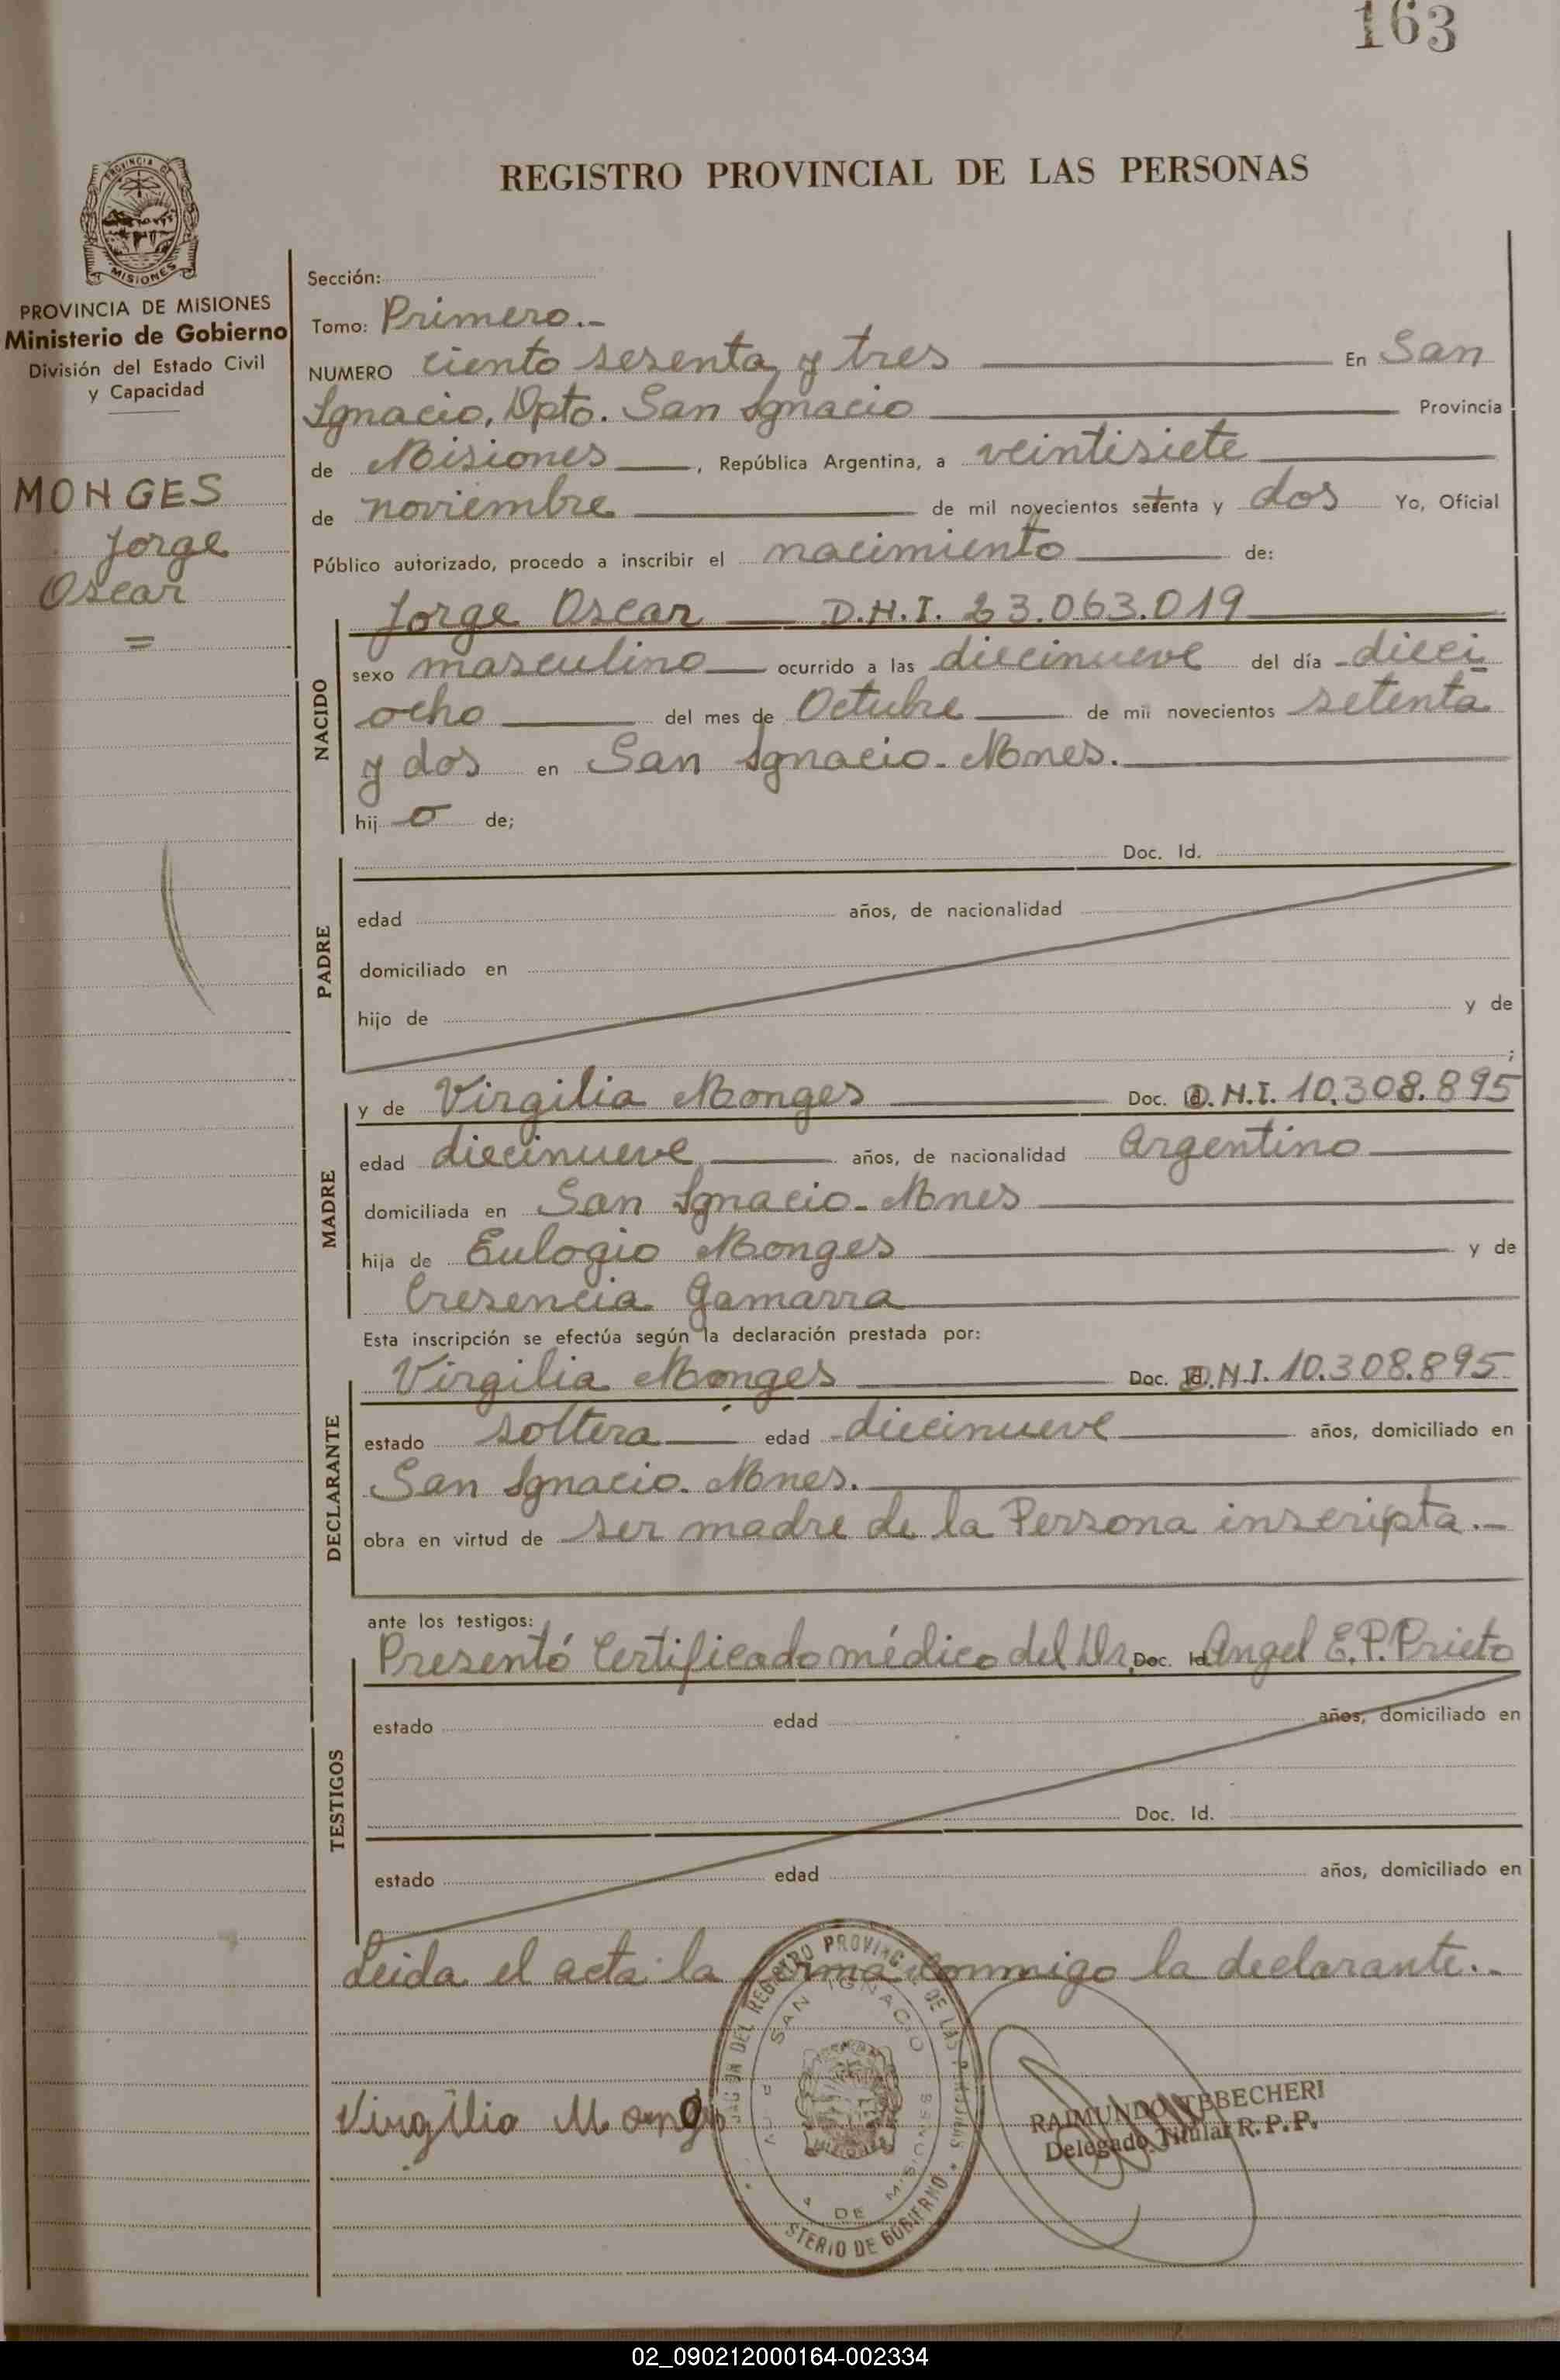 163
REGISTRO PROVINCIAL DE LAS PERSONAS
PROVINCIA DE MISIONES
Ministerio de Gobierno
División del Estado Civil
y Capacidad
MONGES
Jorge
Oscar
=
Sección:
Tomo: Primero.-
NUMERO ciento sesenta y tres En San
Ignacio, Dpto. San Ignacio Provincia
de Misiones, República Argentina, a veintisiete
de noviembre de mil novecientos setenta y dos Yo, Oficial
Público autorizado, procedo a inscribir el nacimiento de:
Jorge Oscar D.N.I. 23.063.019
NACIDO
sexo masculino ocurrido a las diecinueve del día dieci
ocho del mes de Octubre de mil novecientos setenta
y dos en San Ignacio- Mnes.
hij o de;
PADRE
Doc. Id.
edad años, de nacionalidad
domiciliado en
hijo de y de
;
MADRE
y de Virgilia Monges Doc. D.N.I. 10.308.895
edad diecinueve años, de nacionalidad Argentino
domiciliada en San Ignacio- Mnes
hija de Eulogio Monges y de
Cresencia Gamarra
Esta inscripción se efectúa según la declaración prestada por:
DECLARANTE
Virgilia Monges Doc. D.N.I. 10.308.895
estado soltera edad diecinueve años, domiciliado en
San Ignacio. Mnes.
obra en virtud de ser madre de la Persona inscripta.-
ante los testigos:
TESTIGOS
Presentó Certificado médico del Dr. Doc. Id. Angel E.P. Prieto
estado edad años, domiciliado en
Doc. Id.
estado edad años, domiciliado en
Leida el acta la firma conmigo la declarante.-
Virgilia Monges
REGISTRO PROVINCIAL DE LAS PERSONAS
SAN IGNACIO
DE MISIONES
MINISTERIO DE GOBIERNO
RAIMUNDO YBBECHERI
Delegado Titular R.P.P.
02_090212000164-002334